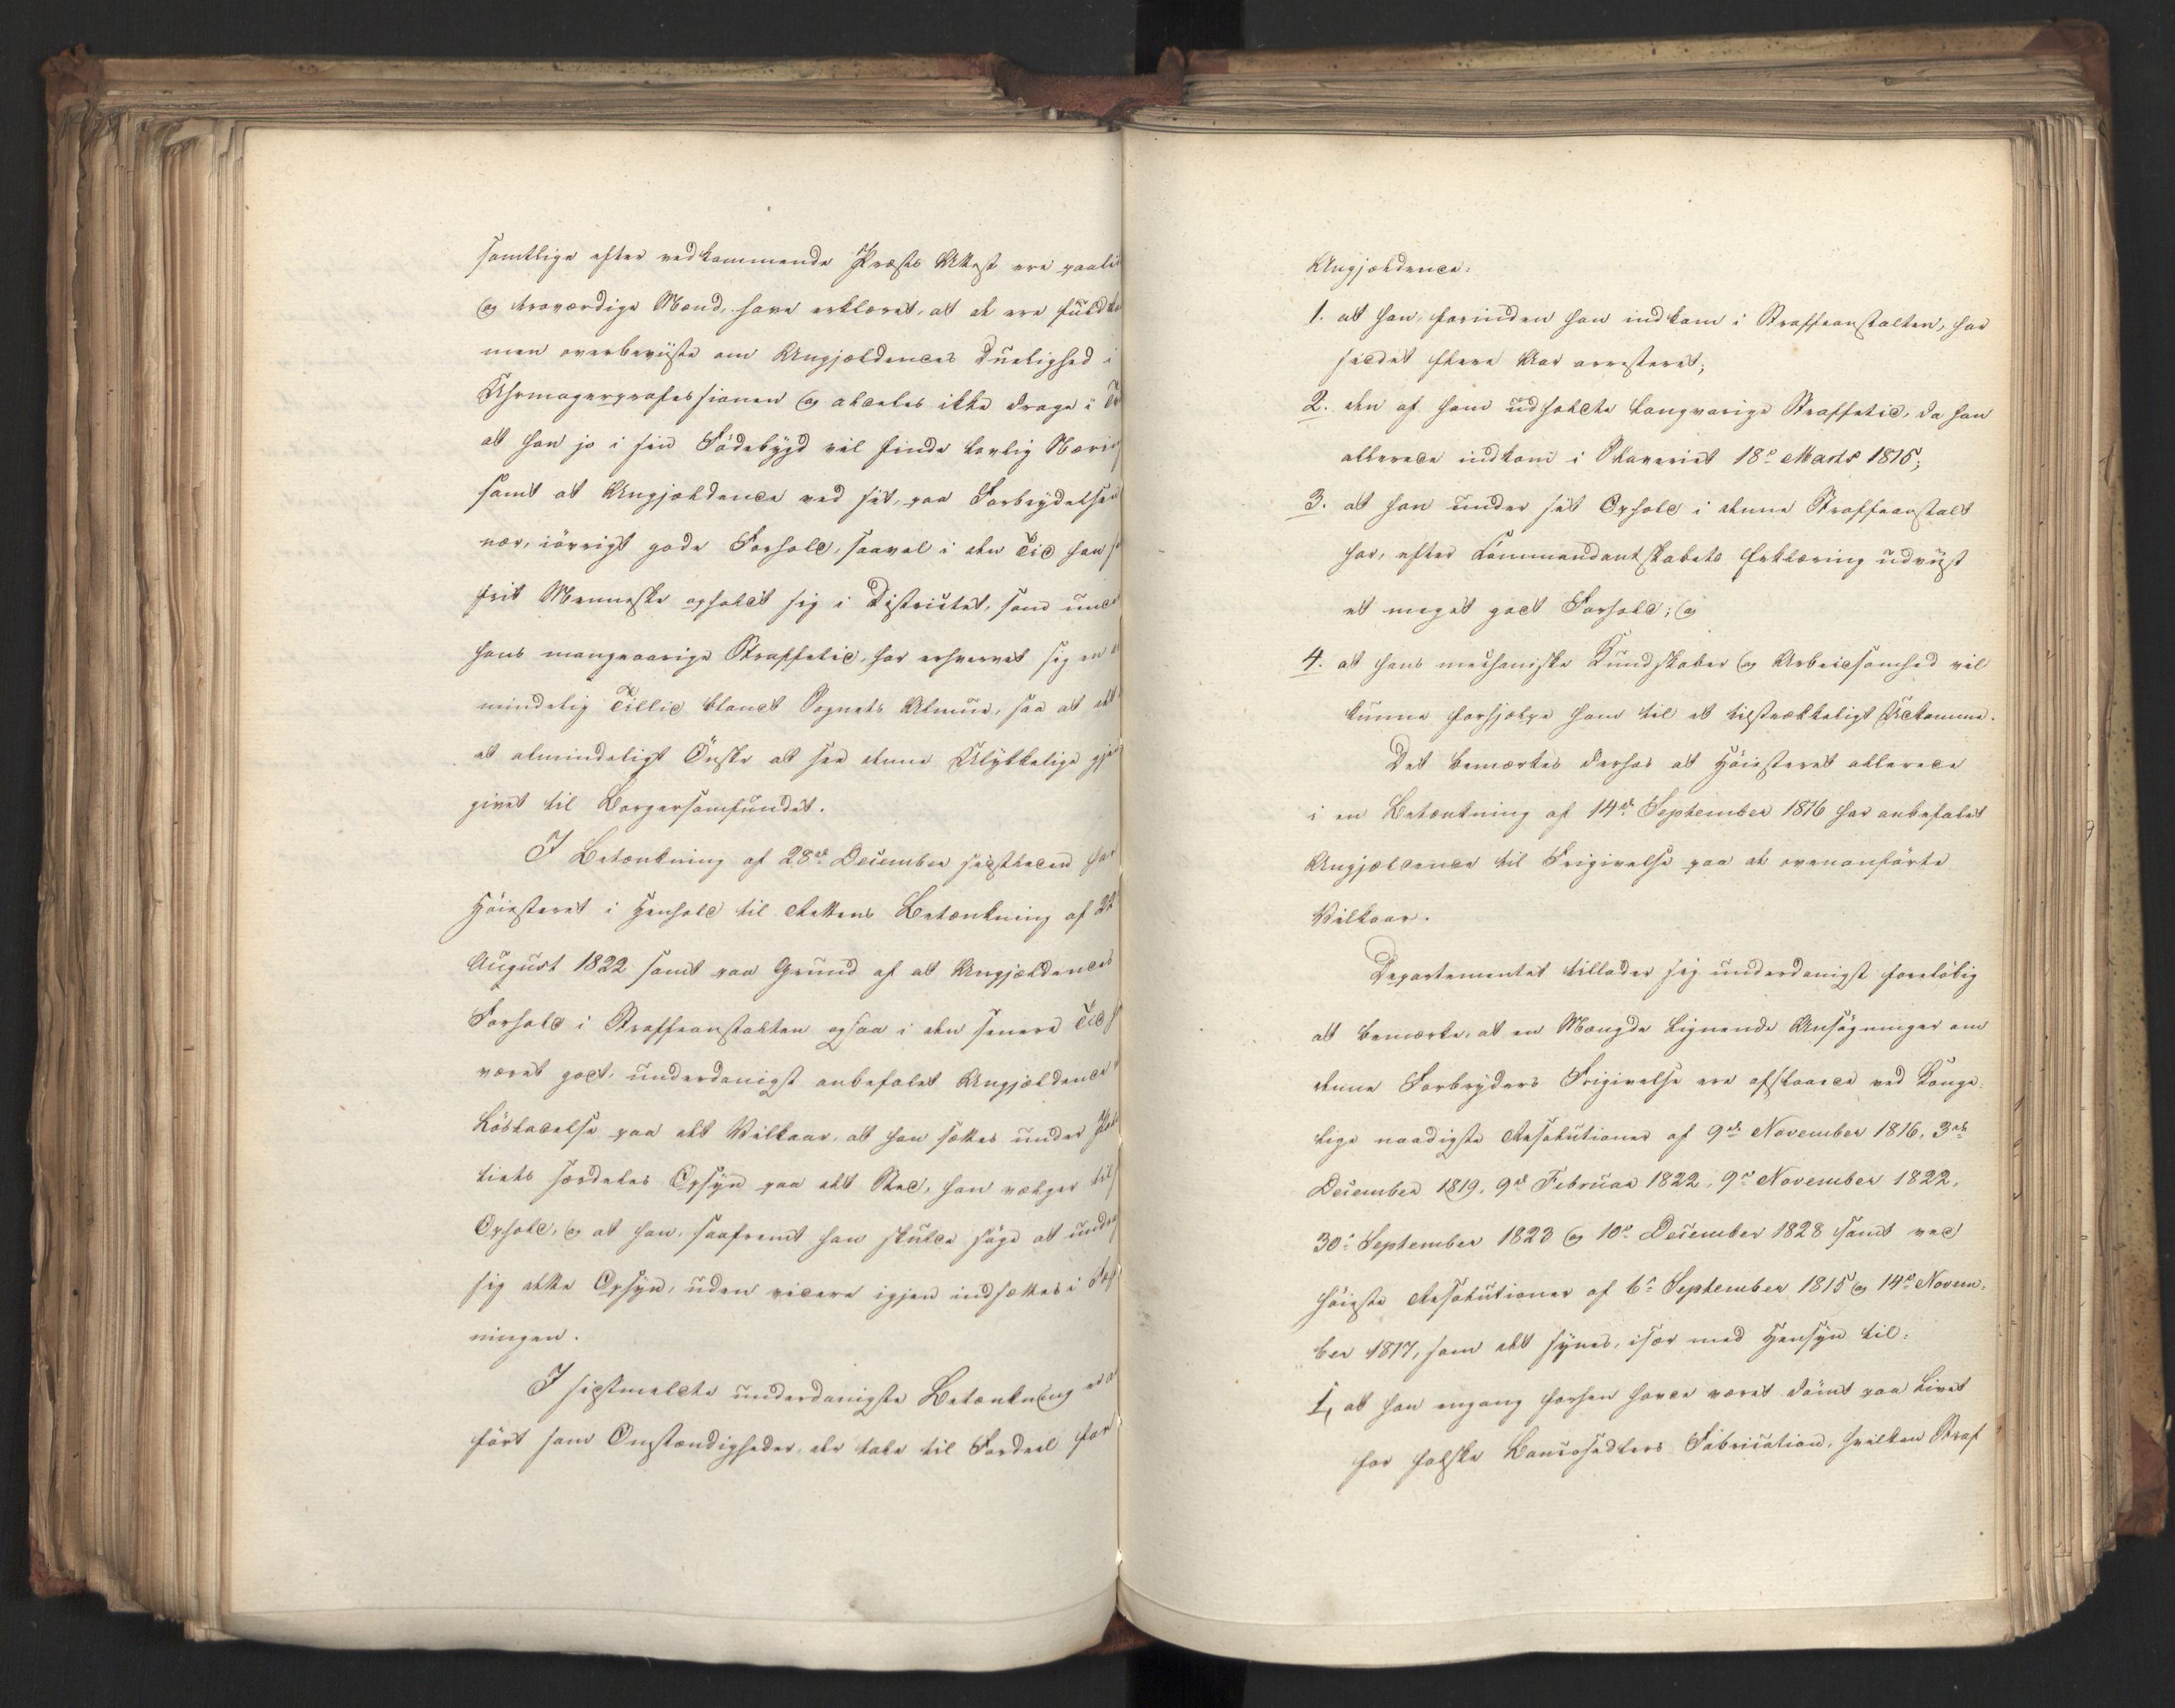 samtlige efter vedkommende Præsts Attest ere paali
og troværdige Mænd, have erklæret, at de ere fuldko
men overbeviiste om Angjældendes Duelighed i
Uhrmagerprofessionen og aldeles ikke drage i Tv
at han jo i sin Födebygd vil finde lovlig Nærin
samt at Angjældende ved sit, paa Forbrydelsen
nær, iövrigt gode Forhold, saavel i den Tid han s
frit Menneske opholdt sig i Districtet, som unde
hans mangeaarige Straffetid, har erhvervet sig en a
mindelig Tillid blandt Sognets Almue, saa at det
et almindeligt Önske at see denne Ulykkelige gjen
givet til Borgersamfundet.
I Betænkning af 28de December sidstleden har
Höiesteret i Henhold til Rettens Betænkning af 22
August 1822 samt paa Grund af at Angjældendes
Forhold i Straffeanstalten ogsaa i den senere Tid h
været godt, underdanigst anbefalet Angjældende
Lösladelse paa det Vilkaar, at han sættes under Poli
tiets særdeles Opsyn paa det Sted, han vælger til
Ophold, og at han, saafremt han skulde söge at undra
sig dette Opsyn, uden videre igjen indsættes i Fæst
ningen.
I sidstmeldte underdanigste Betænkning er a
fört som Omstændigheder, der tale til Fordeel for
Angjældende:
1. at han, forinden han indkom i Straffeanstalten, har
siddet flere Aar arresteret;
2. den af ham udholdte langvarige Straffetid, da han
allerede indkom i Slaveriet 18de Marts 1815;
3. at han under sit Ophold i denne Straffeanstalt
har, efter Commandantskabets Erklæring udviist
et meget godt Forhold; og
4. at hans mechaniske Kundskaber og Arbeidsomhed vil
kunne forhjælpe ham til et tilstrækkeligt Udkomme.
Det bemærkes derhos at Höiesteret allerede
i en Betænkning af 14de September 1816 har anbefalet
Angjældende til Frigivelse paa de ovenanförte
Vilkaar.
Departementet tillader sig underdanigst foreløbig
at bemærke, at en Mængde lignende Ansögninger om
denne Forbryders Frigivelse ere afslaaede ved Konge-
lige naadigste Resolutioner af 9de November 1816, 3die
December 1819, 9de Februar 1822, 9de November 1822,
30te September 1823 og 10de December 1828 samt ved
höieste Resolutioner af 6te September 1815 og 14de Novem-
ber 1817, som det synes, især med Hensyn til:
1, at han engang forhen havde været dömt paa Livet
for falske Bancosedlers Fabrication, hvilken Straf